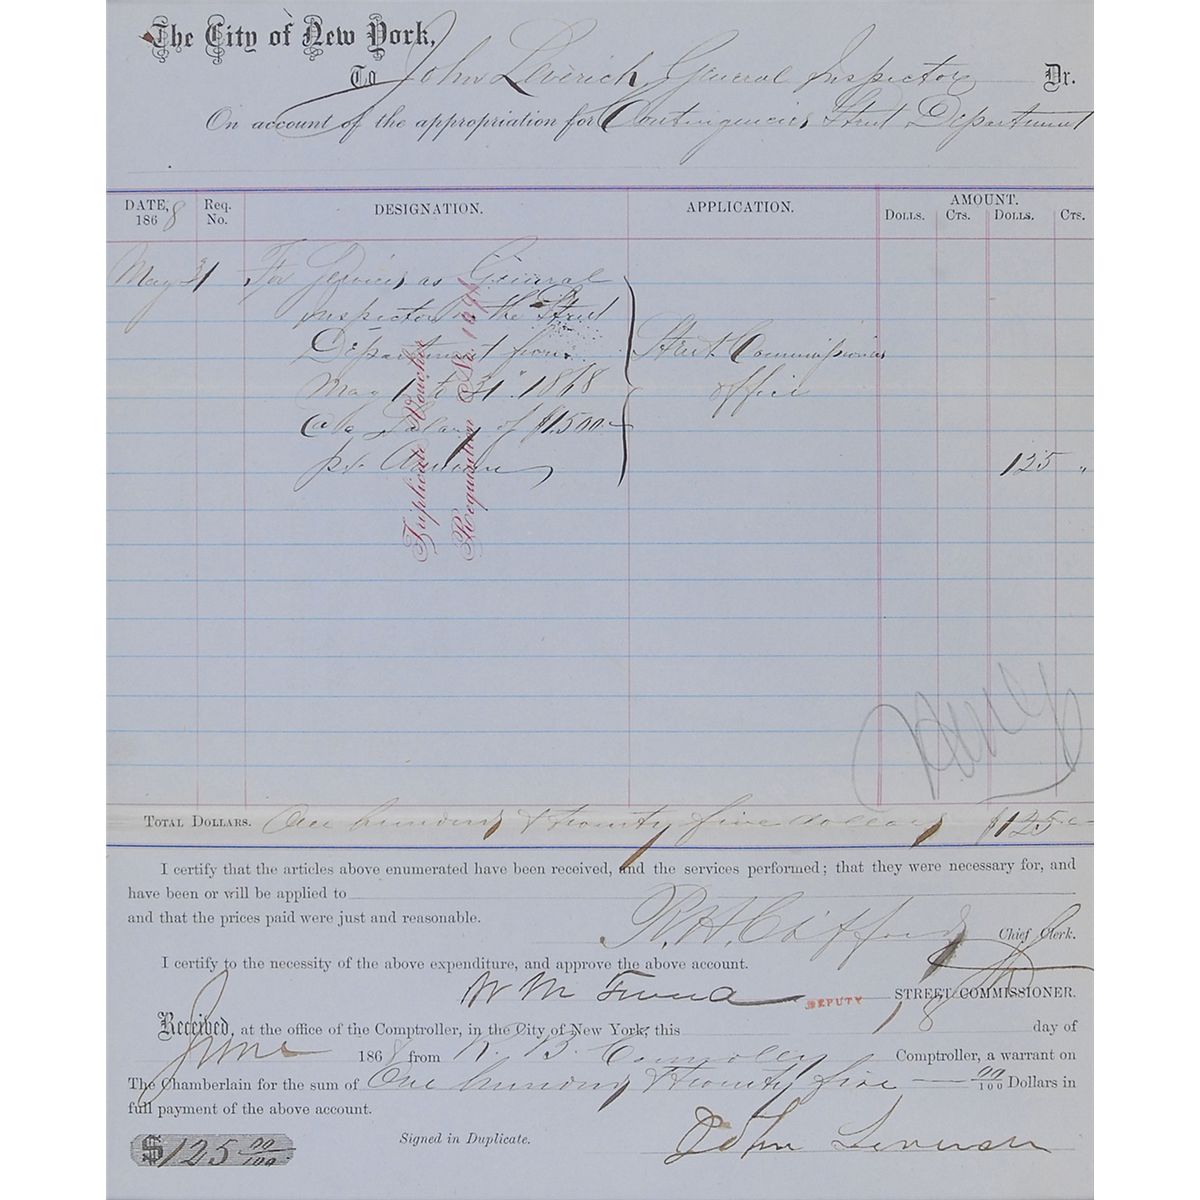 The City of New York,
To John Leverich General Inspector Dr.
On account of the appropriation for Contingencies Street Department
DATE, 1868 Req. No. DESIGNATION. APPLICATION. AMOUNT.
DOLLS. CTS. DOLLS. CTS.
May 31 For Services as General
Inspector in the Street
Department from
May 1 to 31st 1868
@ a Salary of $1500
pr. Annum
Street Commissioners
office
125 "
Triplicate Voucher
Requisition No.
TOTAL DOLLARS. One hundred & twenty five dollars $125
I certify that the articles above enumerated have been received, and the services performed; that they were necessary for, and
have been or will be applied to
and that the prices paid were just and reasonable.
R. H. Clifford Chief Clerk.
I certify to the necessity of the above expenditure, and approve the above account.
W M Tweed DEPUTY STREET COMMISSIONER.
Received, at the office of the Comptroller, in the City of New York, this 18 day of
June 1868 from R. B. Connolly Comptroller, a warrant on
The Chamberlain for the sum of One hundred & twenty five — 00/100 Dollars in
full payment of the above account.
$125 00/100 Signed in Duplicate. John Leverich